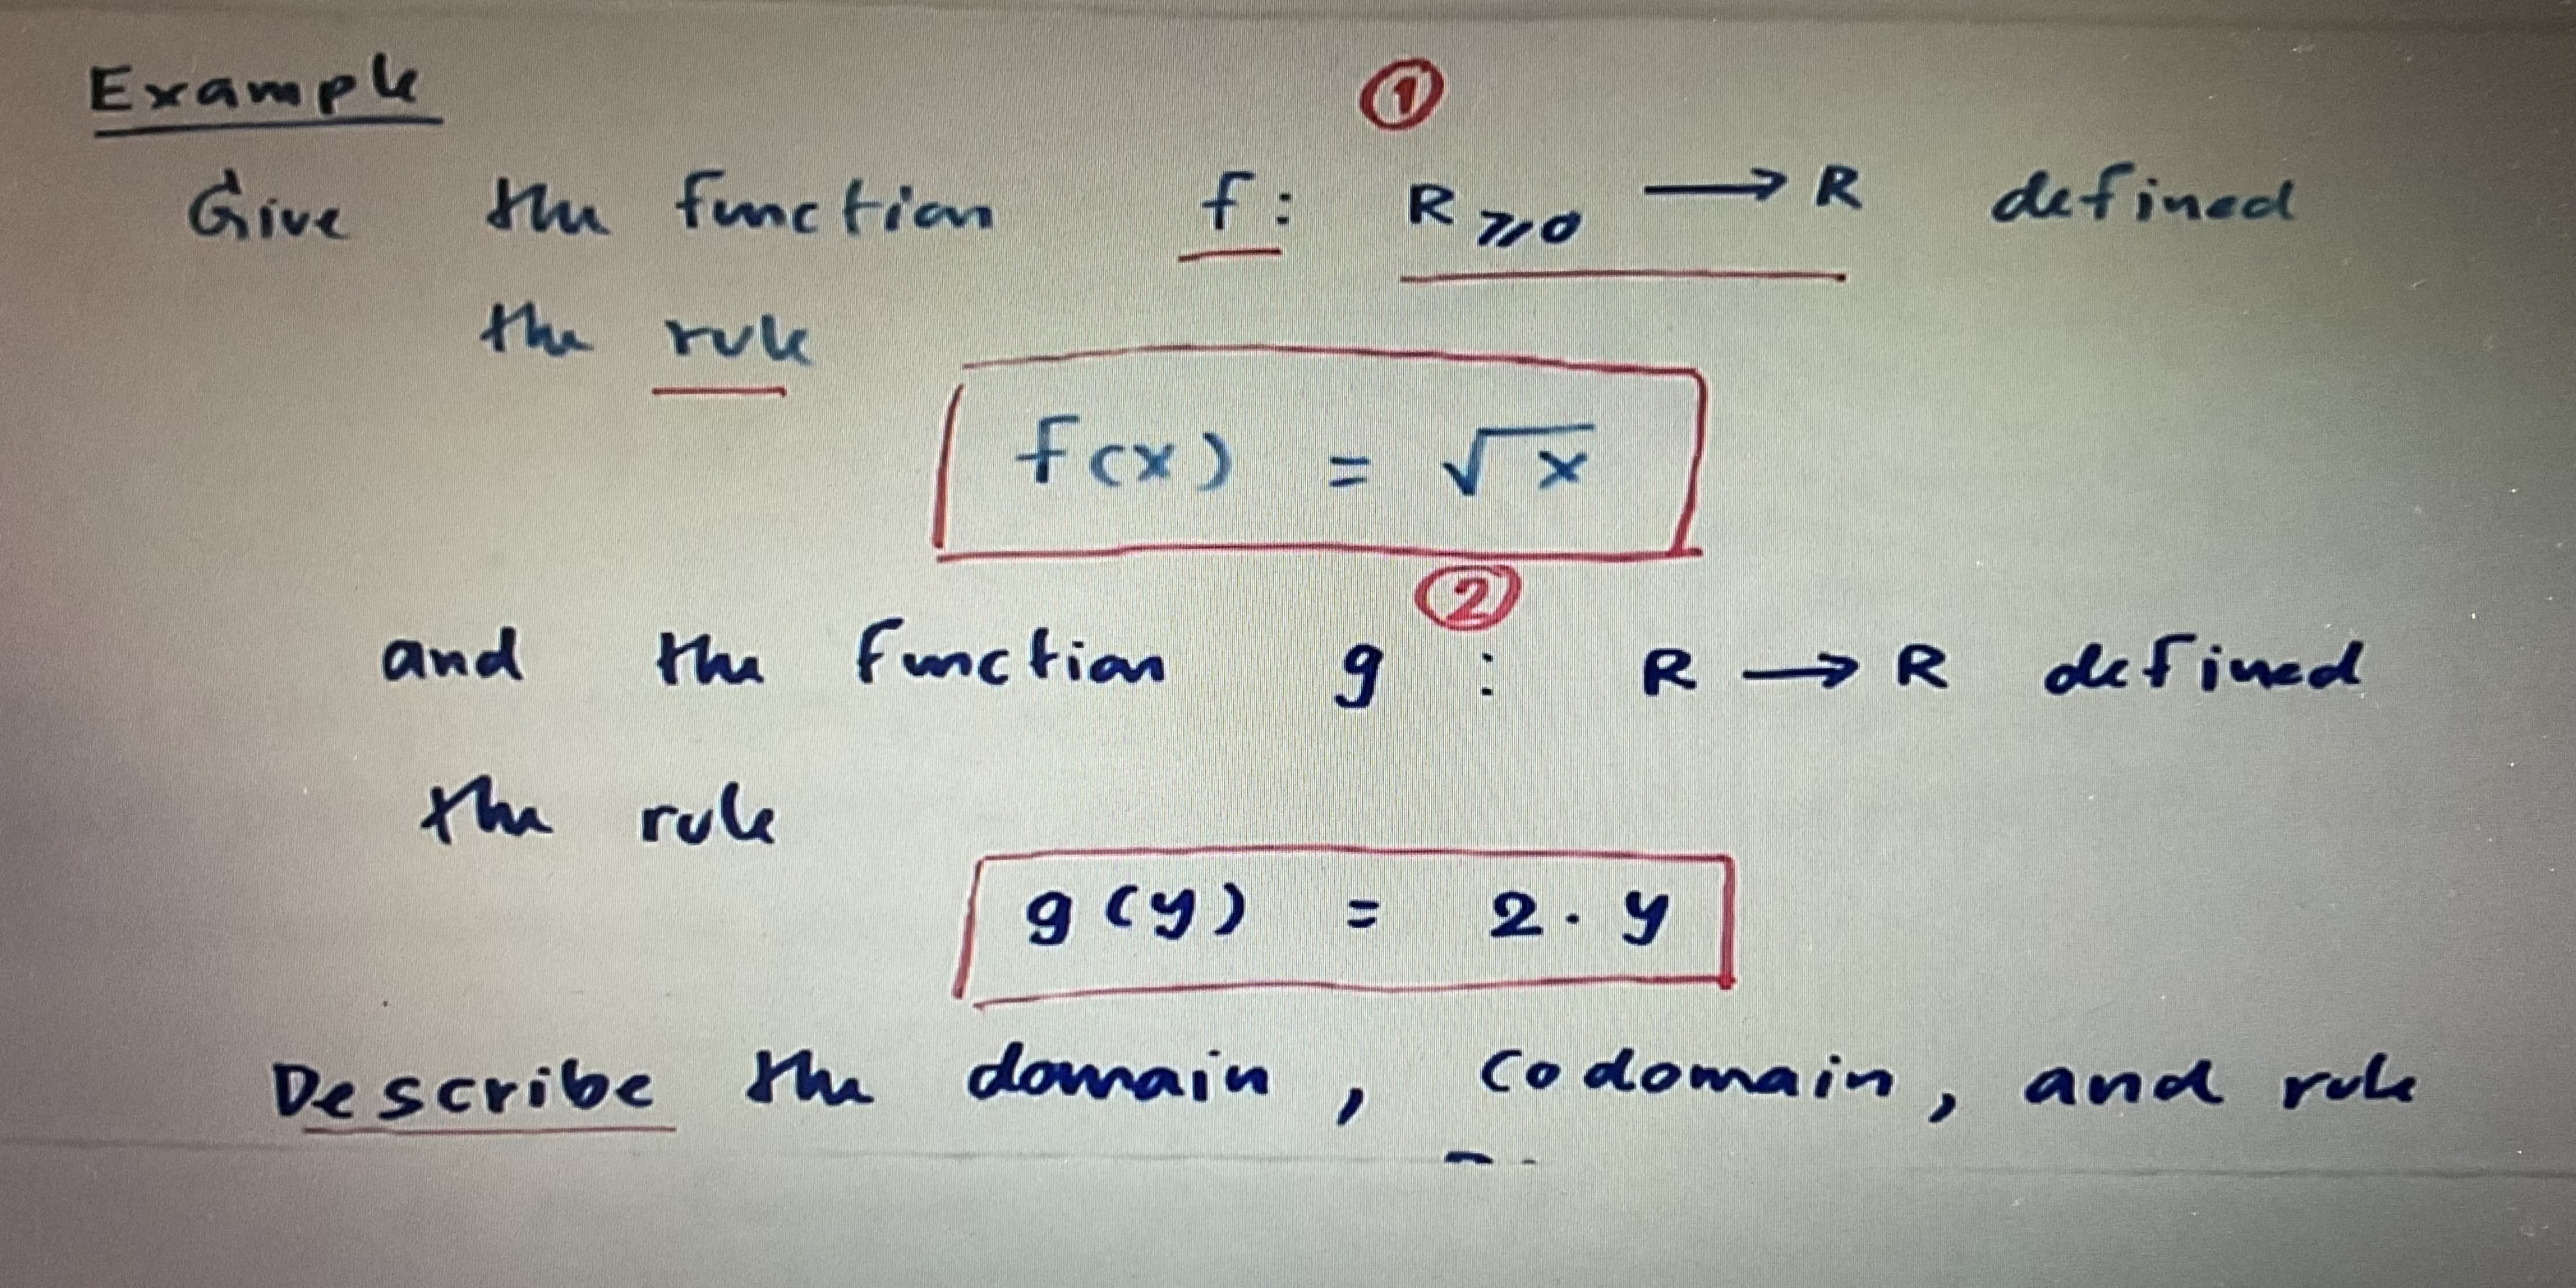 Example
①
Give the function f: R⩾0 → R defined
the rule
f(x) = √x
②
and the function g : R → R defined
the rule
g(y) = 2 · y
Describe the domain, codomain, and rule